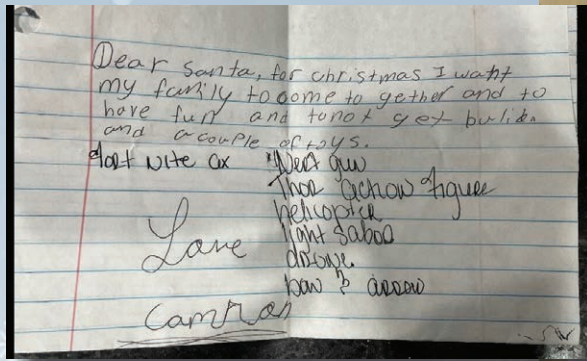 Dear Santa, for christmas I want
my family to come to gether and to
have fun and to not get bulid.
and a couple of toys.
fort nite ax
Nerf gun
Thor action figure
helicopter
light saboo
drone
bow & arrow
Love
Camron